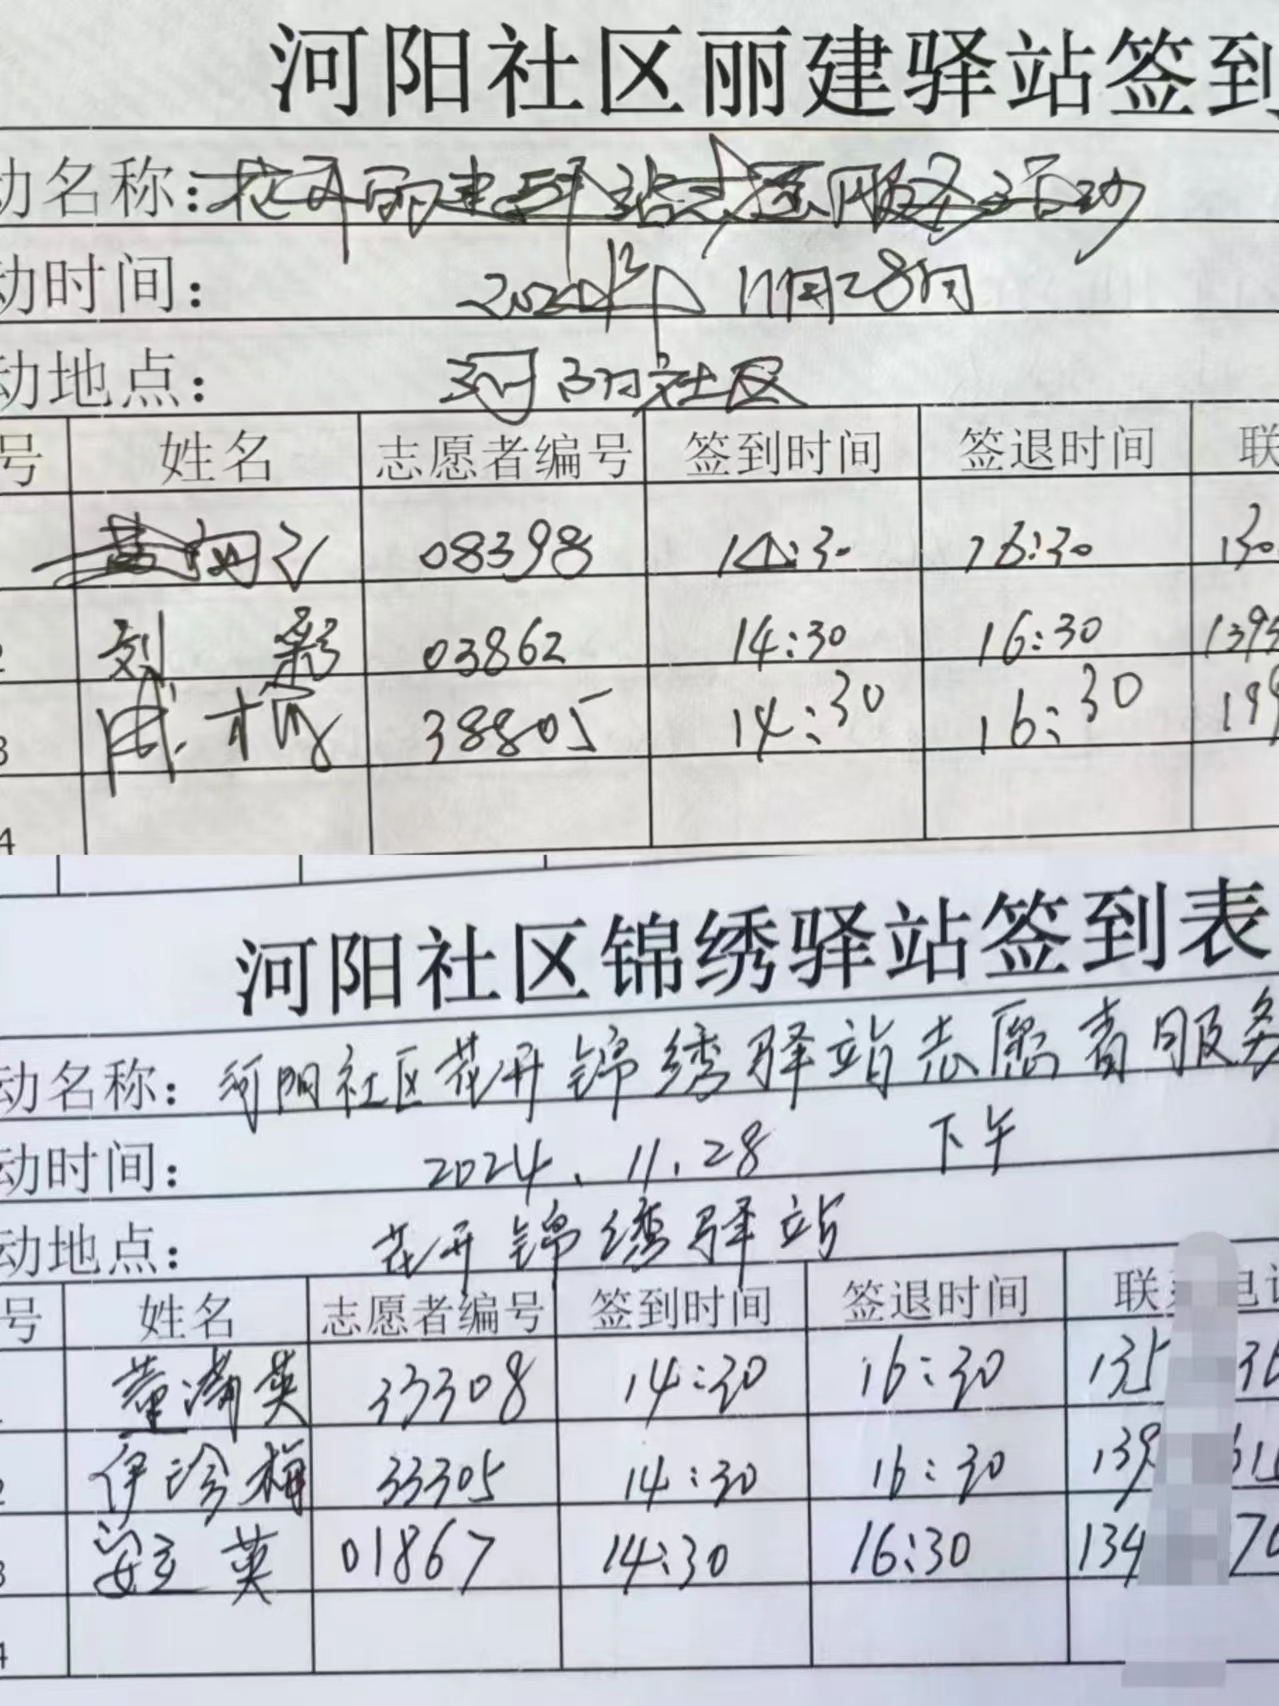 河阳社区丽建驿站签到
动名称：花开丽建驿站志愿服务活动
动时间： 2024年 11月28日
动地点： 河阳社区
号 姓名 志愿者编号 签到时间 签退时间 联
08398 14:30 16:30 130
2 刘彩 03862 14:30 16:30 1395
3 38805 14:30 16:30 199
4
河阳社区锦绣驿站签到表
动名称：河阳社区花开锦绣驿站志愿者服务
动时间： 2024.11.28 下午
动地点： 花开锦绣驿站
号 姓名 志愿者编号 签到时间 签退时间 联 电话
1 董满英 33308 14:30 16:30 135 36
2 伊珍梅 33305 14:30 16:30 139 61
3 英 01867 14:30 16:30 134 70
4